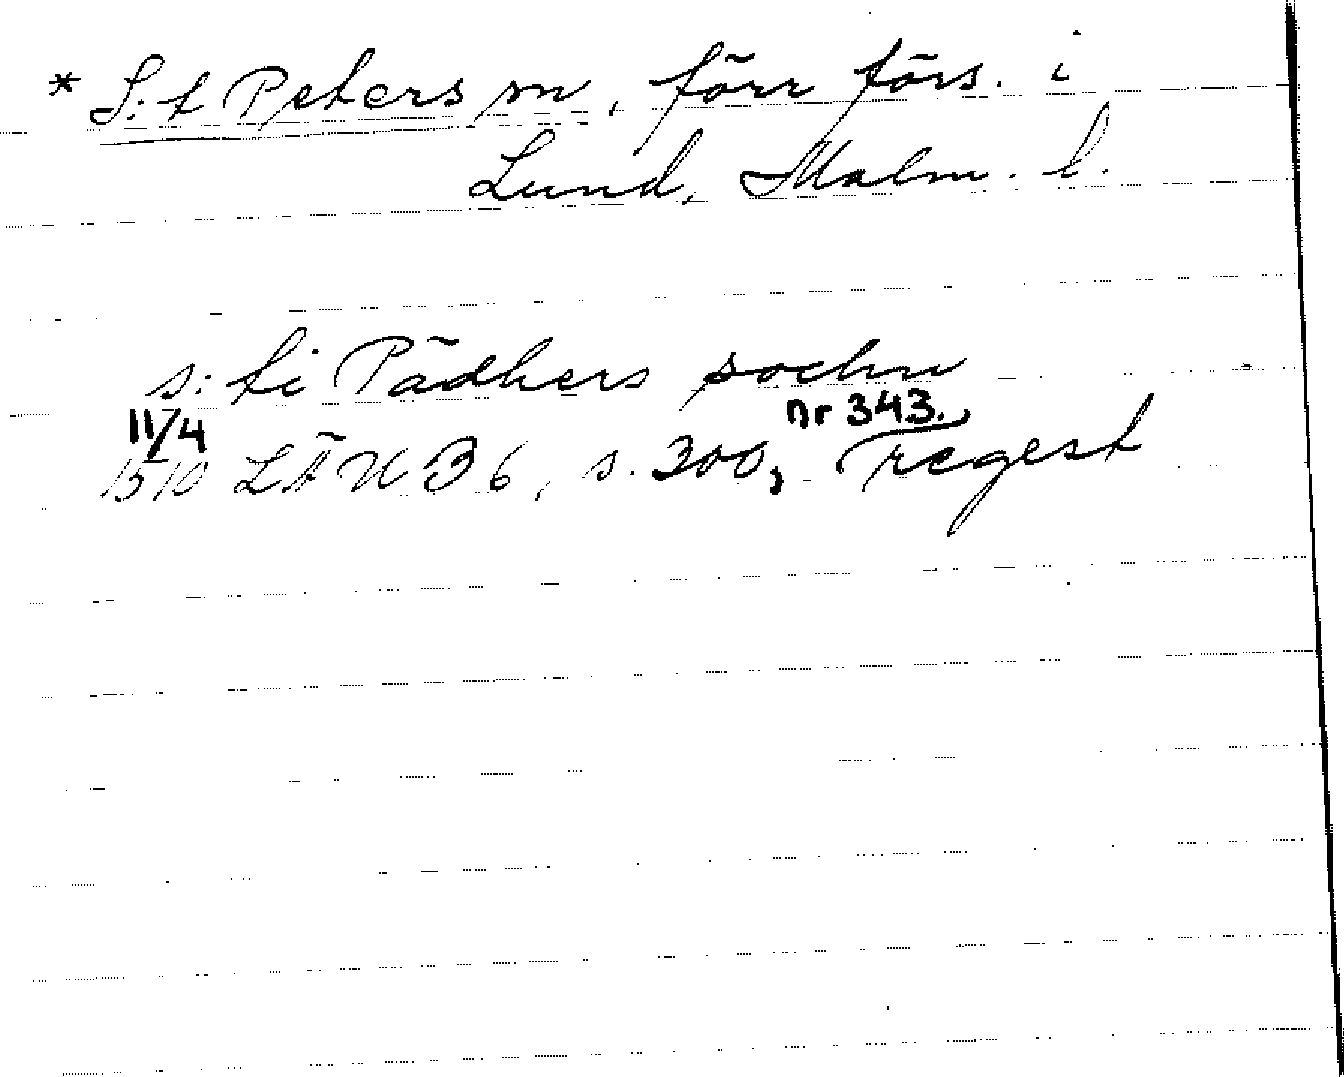 * S:t Peters sn, förr förs. i
Lund, Malm. l.
s: ti Pädhers sochn
11/4 nr 343.
1510 LÄU B 6, s. 300, regest